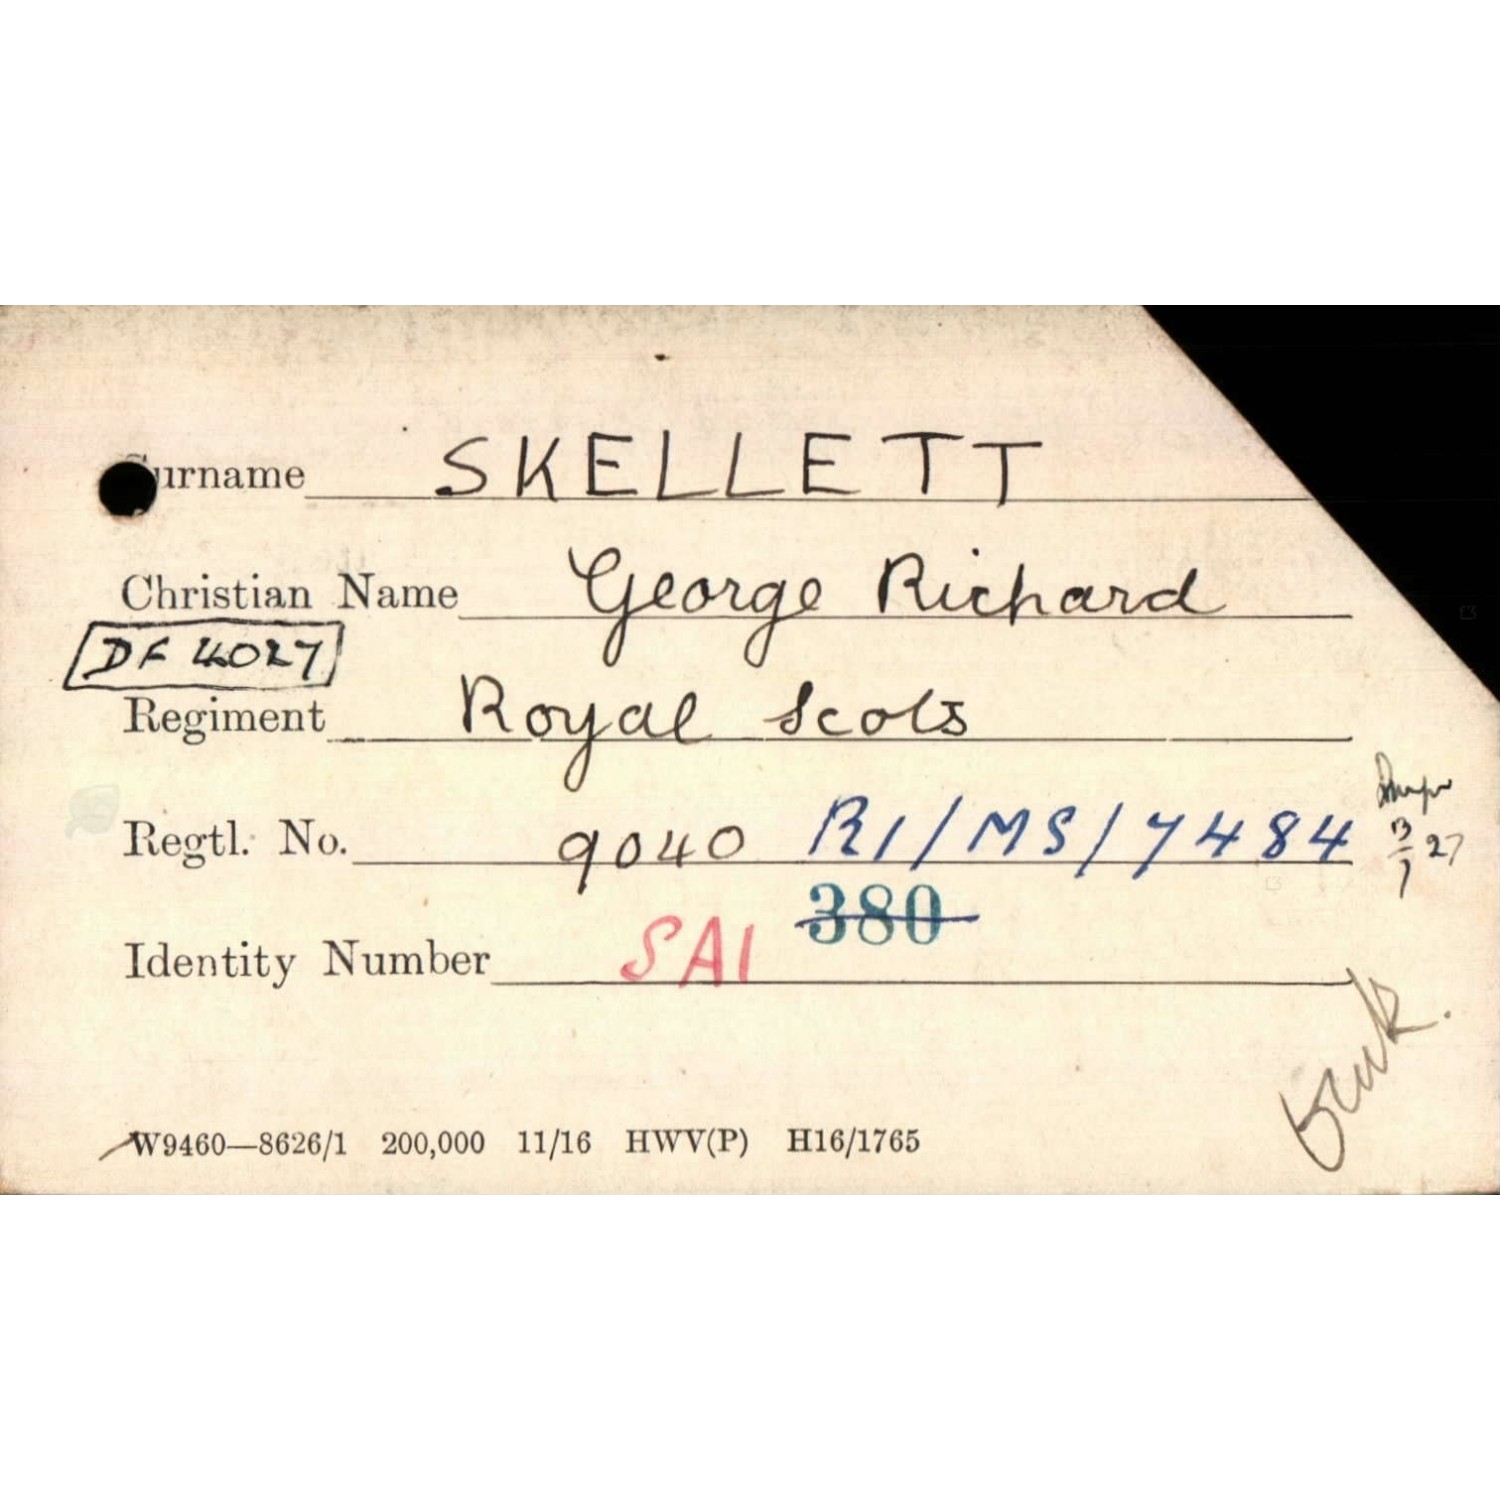 Surname SKELLETT
Christian Name George Richard
DF 4027
Regiment Royal Scots
Regtl. No. 9040 R1/MS/7484
13/1 27
380
Identity Number SA1
W9460—8626/1 200,000 11/16 HWV(P) H16/1765